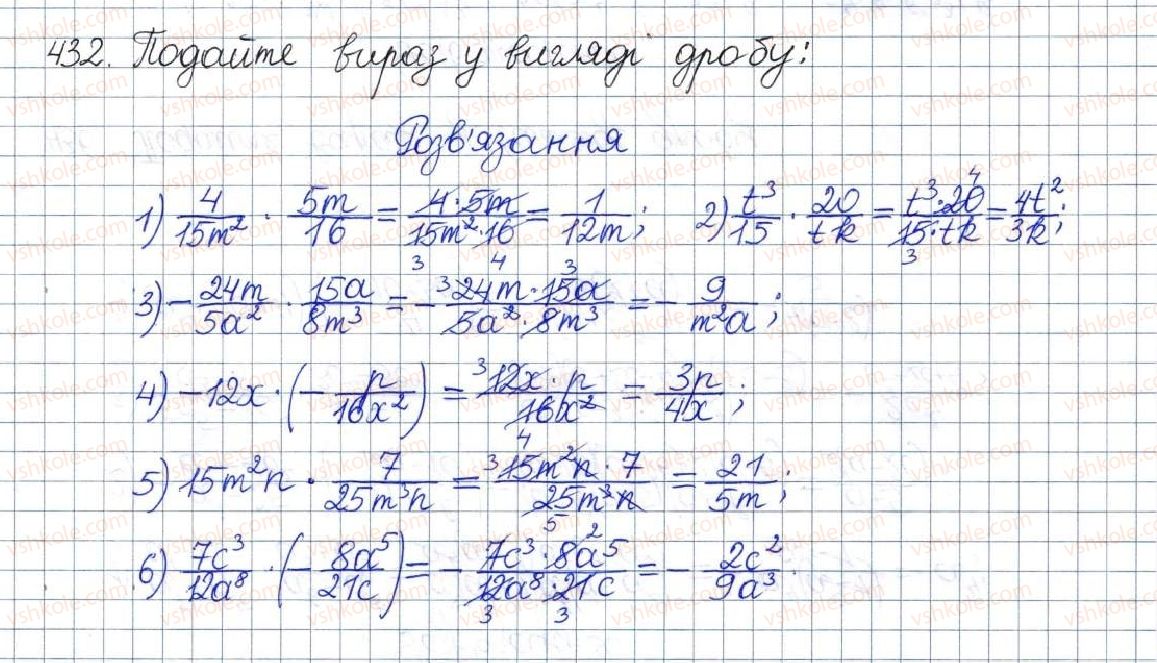 432. Подайте вираз у вигляді дробу:
Розв'язання
1) 4/15m² · 5m/16 = 4·5m/15m²·16 = 1/12m; 2) t³/15 · 20/tk = t³·20/15·tk = 4t²/3k;
3) −24m/5a² · 15a/8m³ = −24m·15a/5a²·8m³ = −9/m²a;
4) −12x·(−p/16x²) = 12x·p/16x² = 3p/4x;
5) 15m²n · 7/25m³n = 15m²n·7/25m³n = 21/5m;
6) 7c³/12a⁸ · (−8a⁵/21c) = −7c³·8a⁵/12a⁸·21c = −2c²/9a³.
vshkole.com